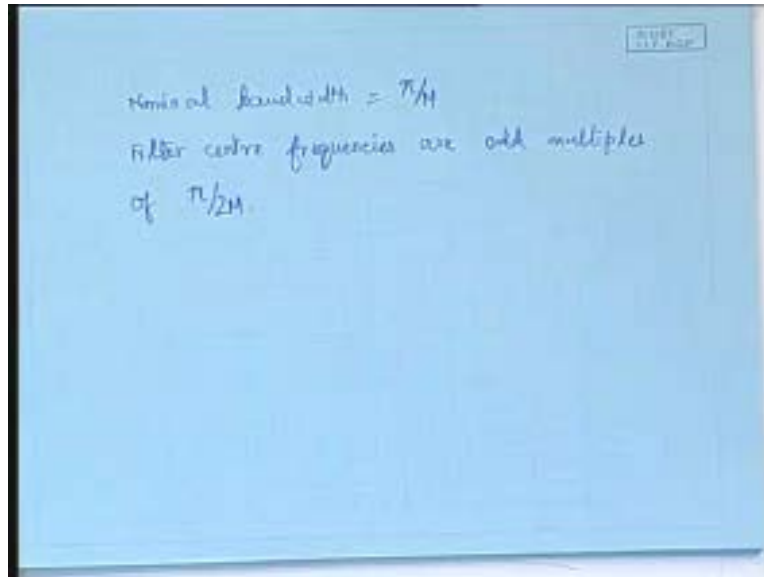 Nominal bandwidth = π/M
Filter centre frequencies are odd multiples
of π/2M.